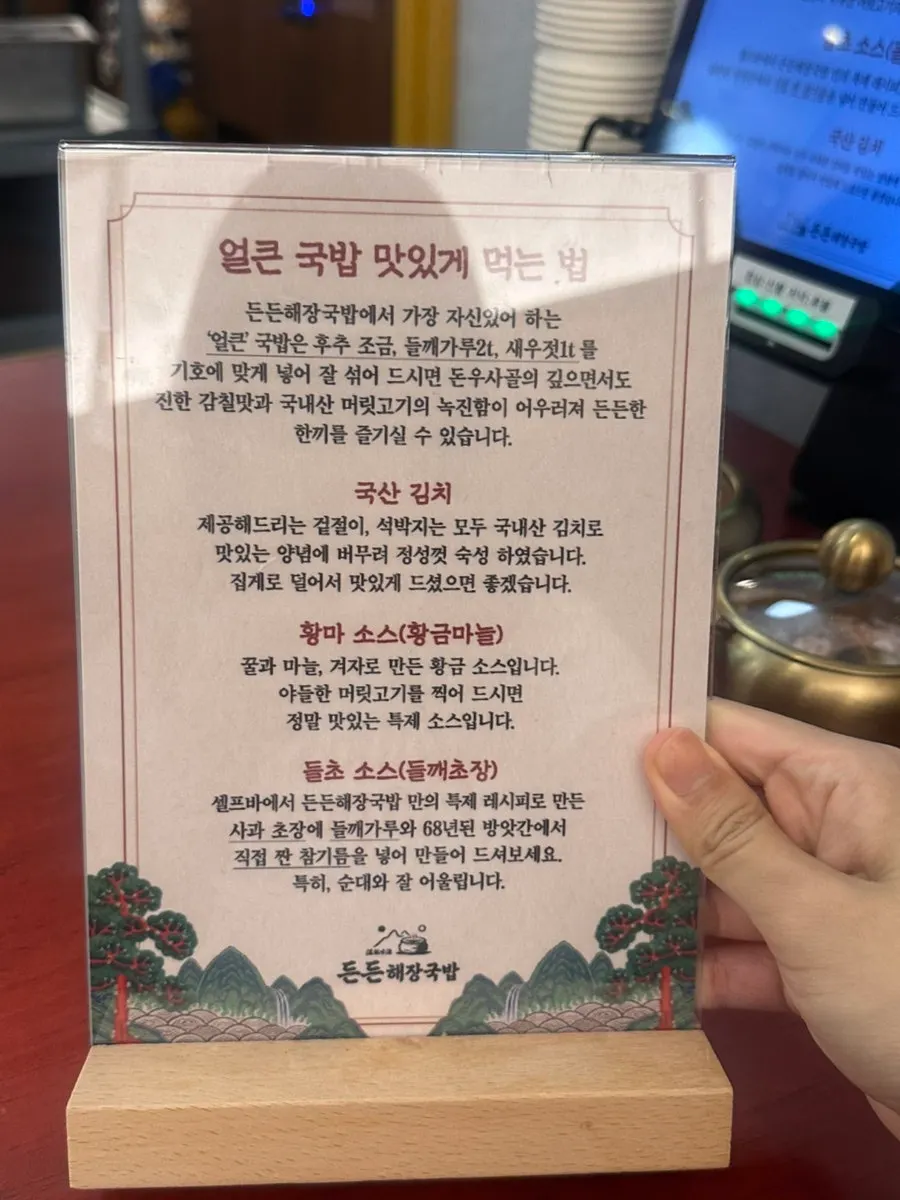 얼큰 국밥 맛있게 먹는 법
든든해장국밥에서 가장 자신있어 하는
‘얼큰’ 국밥은 후추 조금, 들깨가루2t, 새우젓1t 를
기호에 맞게 넣어 잘 섞어 드시면 돈우사골의 깊으면서도
진한 감칠맛과 국내산 머릿고기의 녹진함이 어우러져 든든한
한끼를 즐기실 수 있습니다.
국산 김치
제공해드리는 겉절이, 석박지는 모두 국내산 김치로
맛있는 양념에 버무려 정성껏 숙성 하였습니다.
집게로 덜어서 맛있게 드셨으면 좋겠습니다.
황마 소스(황금마늘)
꿀과 마늘, 겨자로 만든 황금 소스입니다.
야들한 머릿고기를 찍어 드시면
정말 맛있는 특제 소스입니다.
들초 소스(들깨초장)
셀프바에서 든든해장국밥 만의 특제 레시피로 만든
사과 초장에 들깨가루와 68년된 방앗간에서
직접 짠 참기름을 넣어 만들어 드셔보세요.
특히, 순대와 잘 어울립니다.
든든해장국밥
국산 김치
든든해장국밥